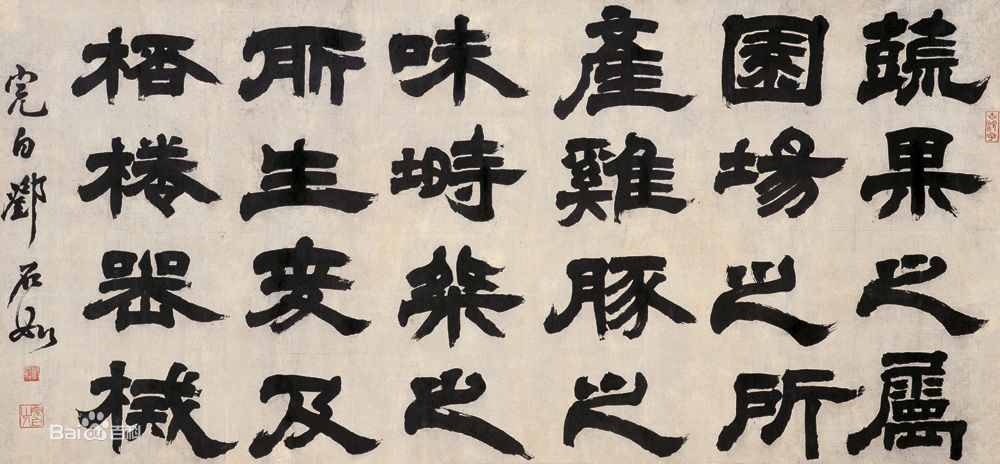 蔬果之屬
園場之所
產雞豚之
味塒桀之
所生爰及
桮棬器械
完白鄧石如
Bai百科